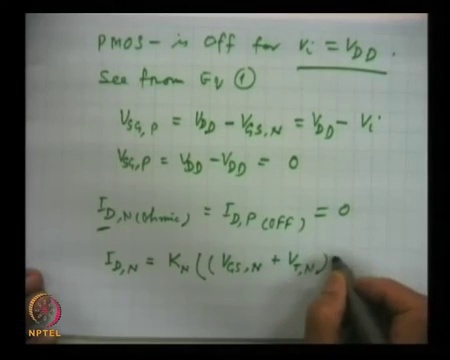 PMOS – is off for Vi = VDD .
See from EV ①
VSG,P = VDD – VGS,N = VDD – Vi
VSG,P = VDD – VDD = 0
ID,N(Ohmic) = ID,P(OFF) = 0
ID,N = KN ((VGS,N + VT,N)
NPTEL